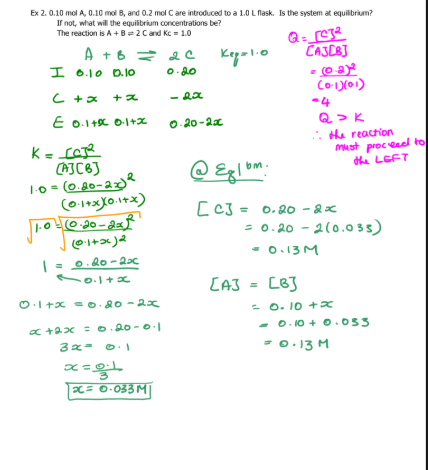 Ex 2. 0.10 mol A, 0.10 mol B, and 0.2 mol C are introduced to a 1.0 L flask. Is the system at equilibrium?
If not, what will the equilibrium concentrations be?
The reaction is A + B ⇌ 2 C and Kc = 1.0
A + B ⇌ 2C Keq=1.0
I 0.10 0.10 0.20
C +x +x -2x
E 0.1+x 0.1+x 0.20-2x
Q = [C]²
[A][B]
= (0.2)²
(0.1)(0.1)
=4
Q > K
∴ the reaction
must proceed to
the LEFT
K = [C]²
[A][B]
1.0 = (0.20-2x)²
(0.1+x)(0.1+x)
√1.0 = √(0.20-2x)²
(0.1+x)²
1 = 0.20-2x
0.1+x
0.1+x = 0.20-2x
x+2x = 0.20-0.1
3x = 0.1
x = 0.1
3
x = 0.033M
@ Eqlbm:
[C] = 0.20 -2x
= 0.20 - 2(0.033)
= 0.13M
[A] = [B]
= 0.10 +x
= 0.10 + 0.033
= 0.13 M